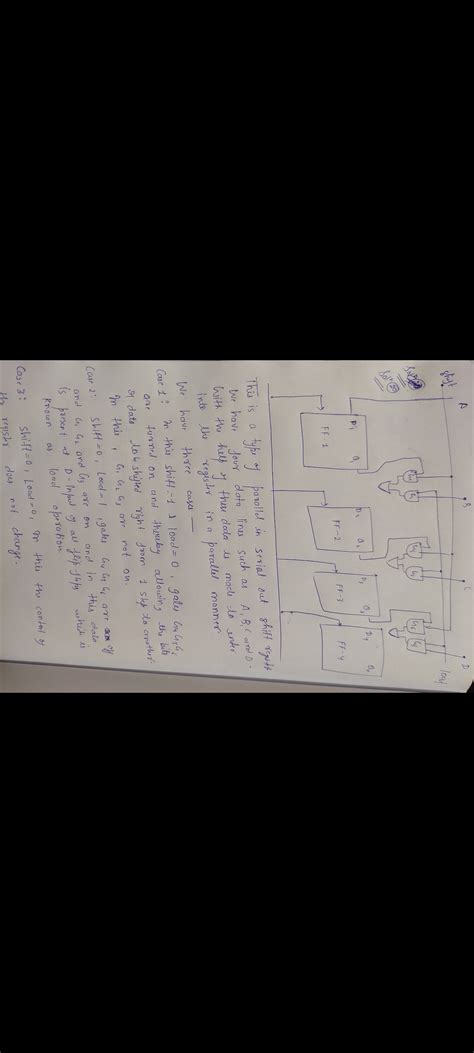 shift
A
B
C
D
Load
D₁
FF-1
FF-2
FF-3
FF-4
This is a type of parallel in serial out shift register
We have four data lines such as A, B, C and D.
With the help of these data is made to enter
into the register in a parallel manner
We have three cases —
Case 1: In this shift = 1 & load = 0, gates
are turned on and thereby allowing the bits
of data to be shifted right from 1 step to another
In this, G₁ G₂ G₃ are not on.
Case 2: Shift = 0, Load = 1, gates G₄ G₅ G₆ are off
and G₁ G₂ and G₃ are on and in this data
is present at D-input of all flip flops which is
known as load operation.
Case 3: Shift = 0, Load = 0, In this the content of
the register does not change.